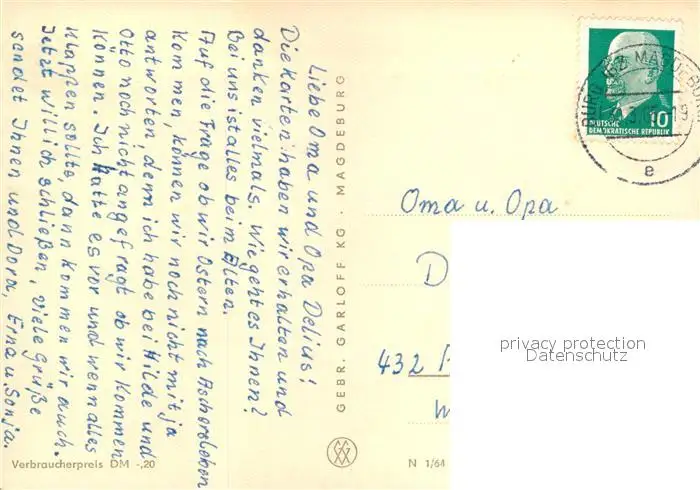 Liebe Oma und Opa Delius!
Die Karten haben wir erhalten und
danken vielmals. Wie geht es Ihnen?
Bei uns ist alles beim Alten.
Auf die Frage ob wir Ostern nach Aschersleben
kommen, können wir noch nicht mit ja
antworten, denn ich habe bei Hilde und
Otto noch nicht angefragt ob wir kommen
können. Ich hatte es vor und wenn alles
klappen sollte, dann kommen wir auch.
Jetzt will ich schließen, viele Grüße
sendet Ihnen und Dora, Erna u. Sonja.
Verbraucherpreis DM -,20
GEBR. GARLOFF KG · MAGDEBURG
N 1/64
10
DEUTSCHE
DEMOKRATISCHE REPUBLIK
BURG MAGDEBURG
e
Oma u. Opa
D
432
privacy protection
Datenschutz